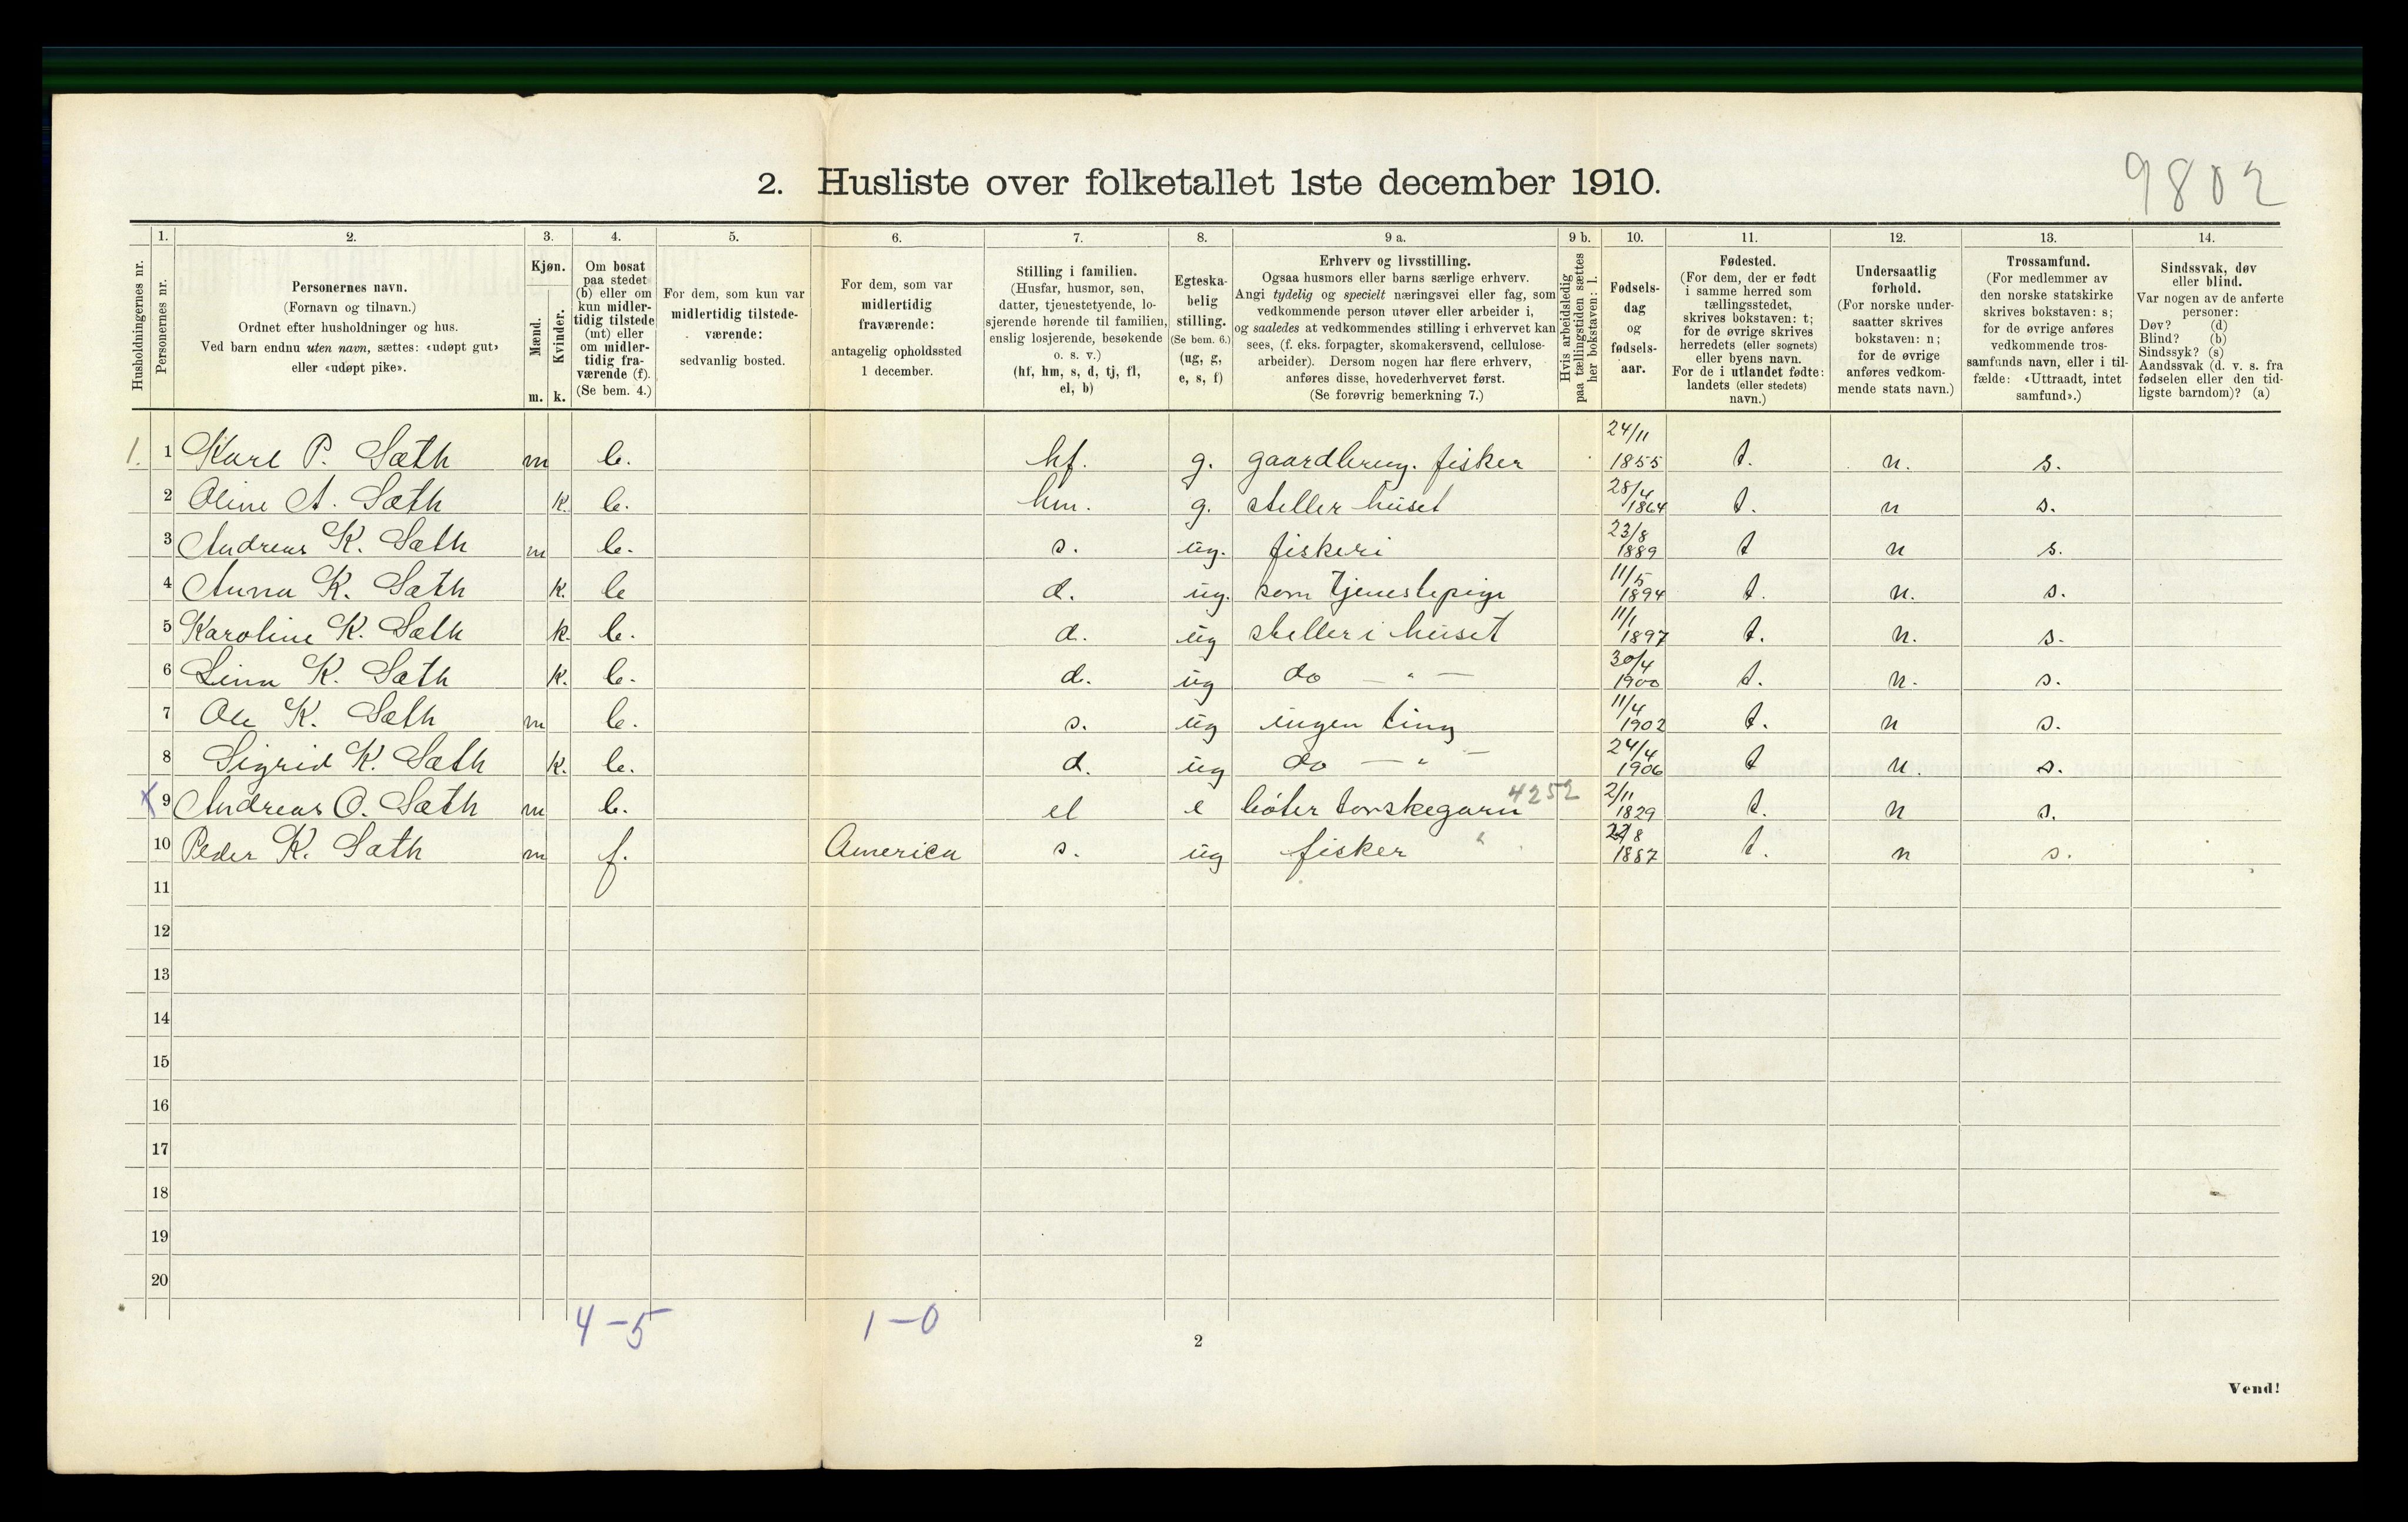 9802
2. Husliste over folketallet 1ste december 1910.
Husholdningernes nr.
1. Personernes nr.
2. Personernes navn.
(Fornavn og tilnavn.)
Ordnet efter husholdninger og hus.
Ved barn endnu uten navn, sættes: «udøpt gut»
eller «udøpt pike».
3. Kjøn.
Mænd. m.
Kvinder. k.
4. Om bosat
paa stedet
(b) eller om
kun midler-
tidig tilstede
(mt) eller
om midler-
tidig fra-
værende (f).
(Se bem. 4.)
5. For dem, som kun var
midlertidig tilstede-
værende:
sedvanlig bosted.
6. For dem, som var
midlertidig
fraværende:
antagelig opholdssted
1 december.
7. Stilling i familien.
(Husfar, husmor, søn,
datter, tjenestetyende, lo-
sjerende hørende til familien,
enslig losjerende, besøkende
o. s. v.)
(hf, hm, s, d, tj, fl,
el, b)
8. Egteska-
belig
stilling.
(Se bem. 6.)
(ug, g,
e, s, f)
9 a. Erhverv og livsstilling.
Ogsaa husmors eller barns særlige erhverv.
Angi tydelig og specielt næringsvei eller fag, som
vedkommende person utøver eller arbeider i,
og saaledes at vedkommendes stilling i erhvervet kan
sees, (f. eks. forpagter, skomakersvend, cellulose-
arbeider). Dersom nogen har flere erhverv,
anføres disse, hovederhvervet først.
(Se forøvrig bemerkning 7.)
9 b. Hvis arbeidsledig
paa tællingstiden sættes
her bokstaven: l.
10. Fødsels-
dag
og
fødsels-
aar.
11. Fødested.
(For dem, der er født
i samme herred som
tællingsstedet,
skrives bokstaven: t;
for de øvrige skrives
herredets (eller sognets)
eller byens navn.
For de i utlandet fødte:
landets (eller stedets)
navn.)
12. Undersaatlig
forhold.
(For norske under-
saatter skrives
bokstaven: n;
for de øvrige
anføres vedkom-
mende stats navn.)
13. Trossamfund.
(For medlemmer av
den norske statskirke
skrives bokstaven: s;
for de øvrige anføres
vedkommende tros-
samfunds navn, eller i til-
fælde: «Uttraadt, intet
samfund».)
14. Sindssvak, døv
eller blind.
Var nogen av de anførte
personer:
Døv? (d)
Blind? (b)
Sindssyk? (s)
Aandssvak (d. v. s. fra
fødselen eller den tid-
ligste barndom)? (a)
1. 1 Karl P. Sæth m b. hf. g. gaardbrug. fisker 24/11 1855 t. n. s.
2 Oline A. Sæth k. b. hm. g. steller huset 28/4 1864 t. n s.
3 Andreas K. Sæth m b. s. ug. fiskeri 23/8 1889 t n s.
4 Anna K. Sæth k. b d. ug. som tjenestepige 11/5 1894 t. n. s.
5 Karoline K. Sæth k. b. d. ug steller i huset 11/1 1897 t. n. s.
6 Lina K. Sæth k. b. d. ug do — " — 30/4 1900 t. n. s.
7 Ole K. Sæth m b. s. ug ingen ting 11/4 1902 t. n s.
8 Sigrid K. Sæth k. b. d. ug do — " — 24/4 1906 t n. s.
x 9 Andreas O. Sæth m b. el e bøter torskegarn 4252 2/11 1829 t. n s.
10 Peder K. Sæth m f. America s. ug fisker " 22/8 1887 t. n s.
11
12
13
14
15
16
17
18
19
20
4–5 1–0
2
Vend!